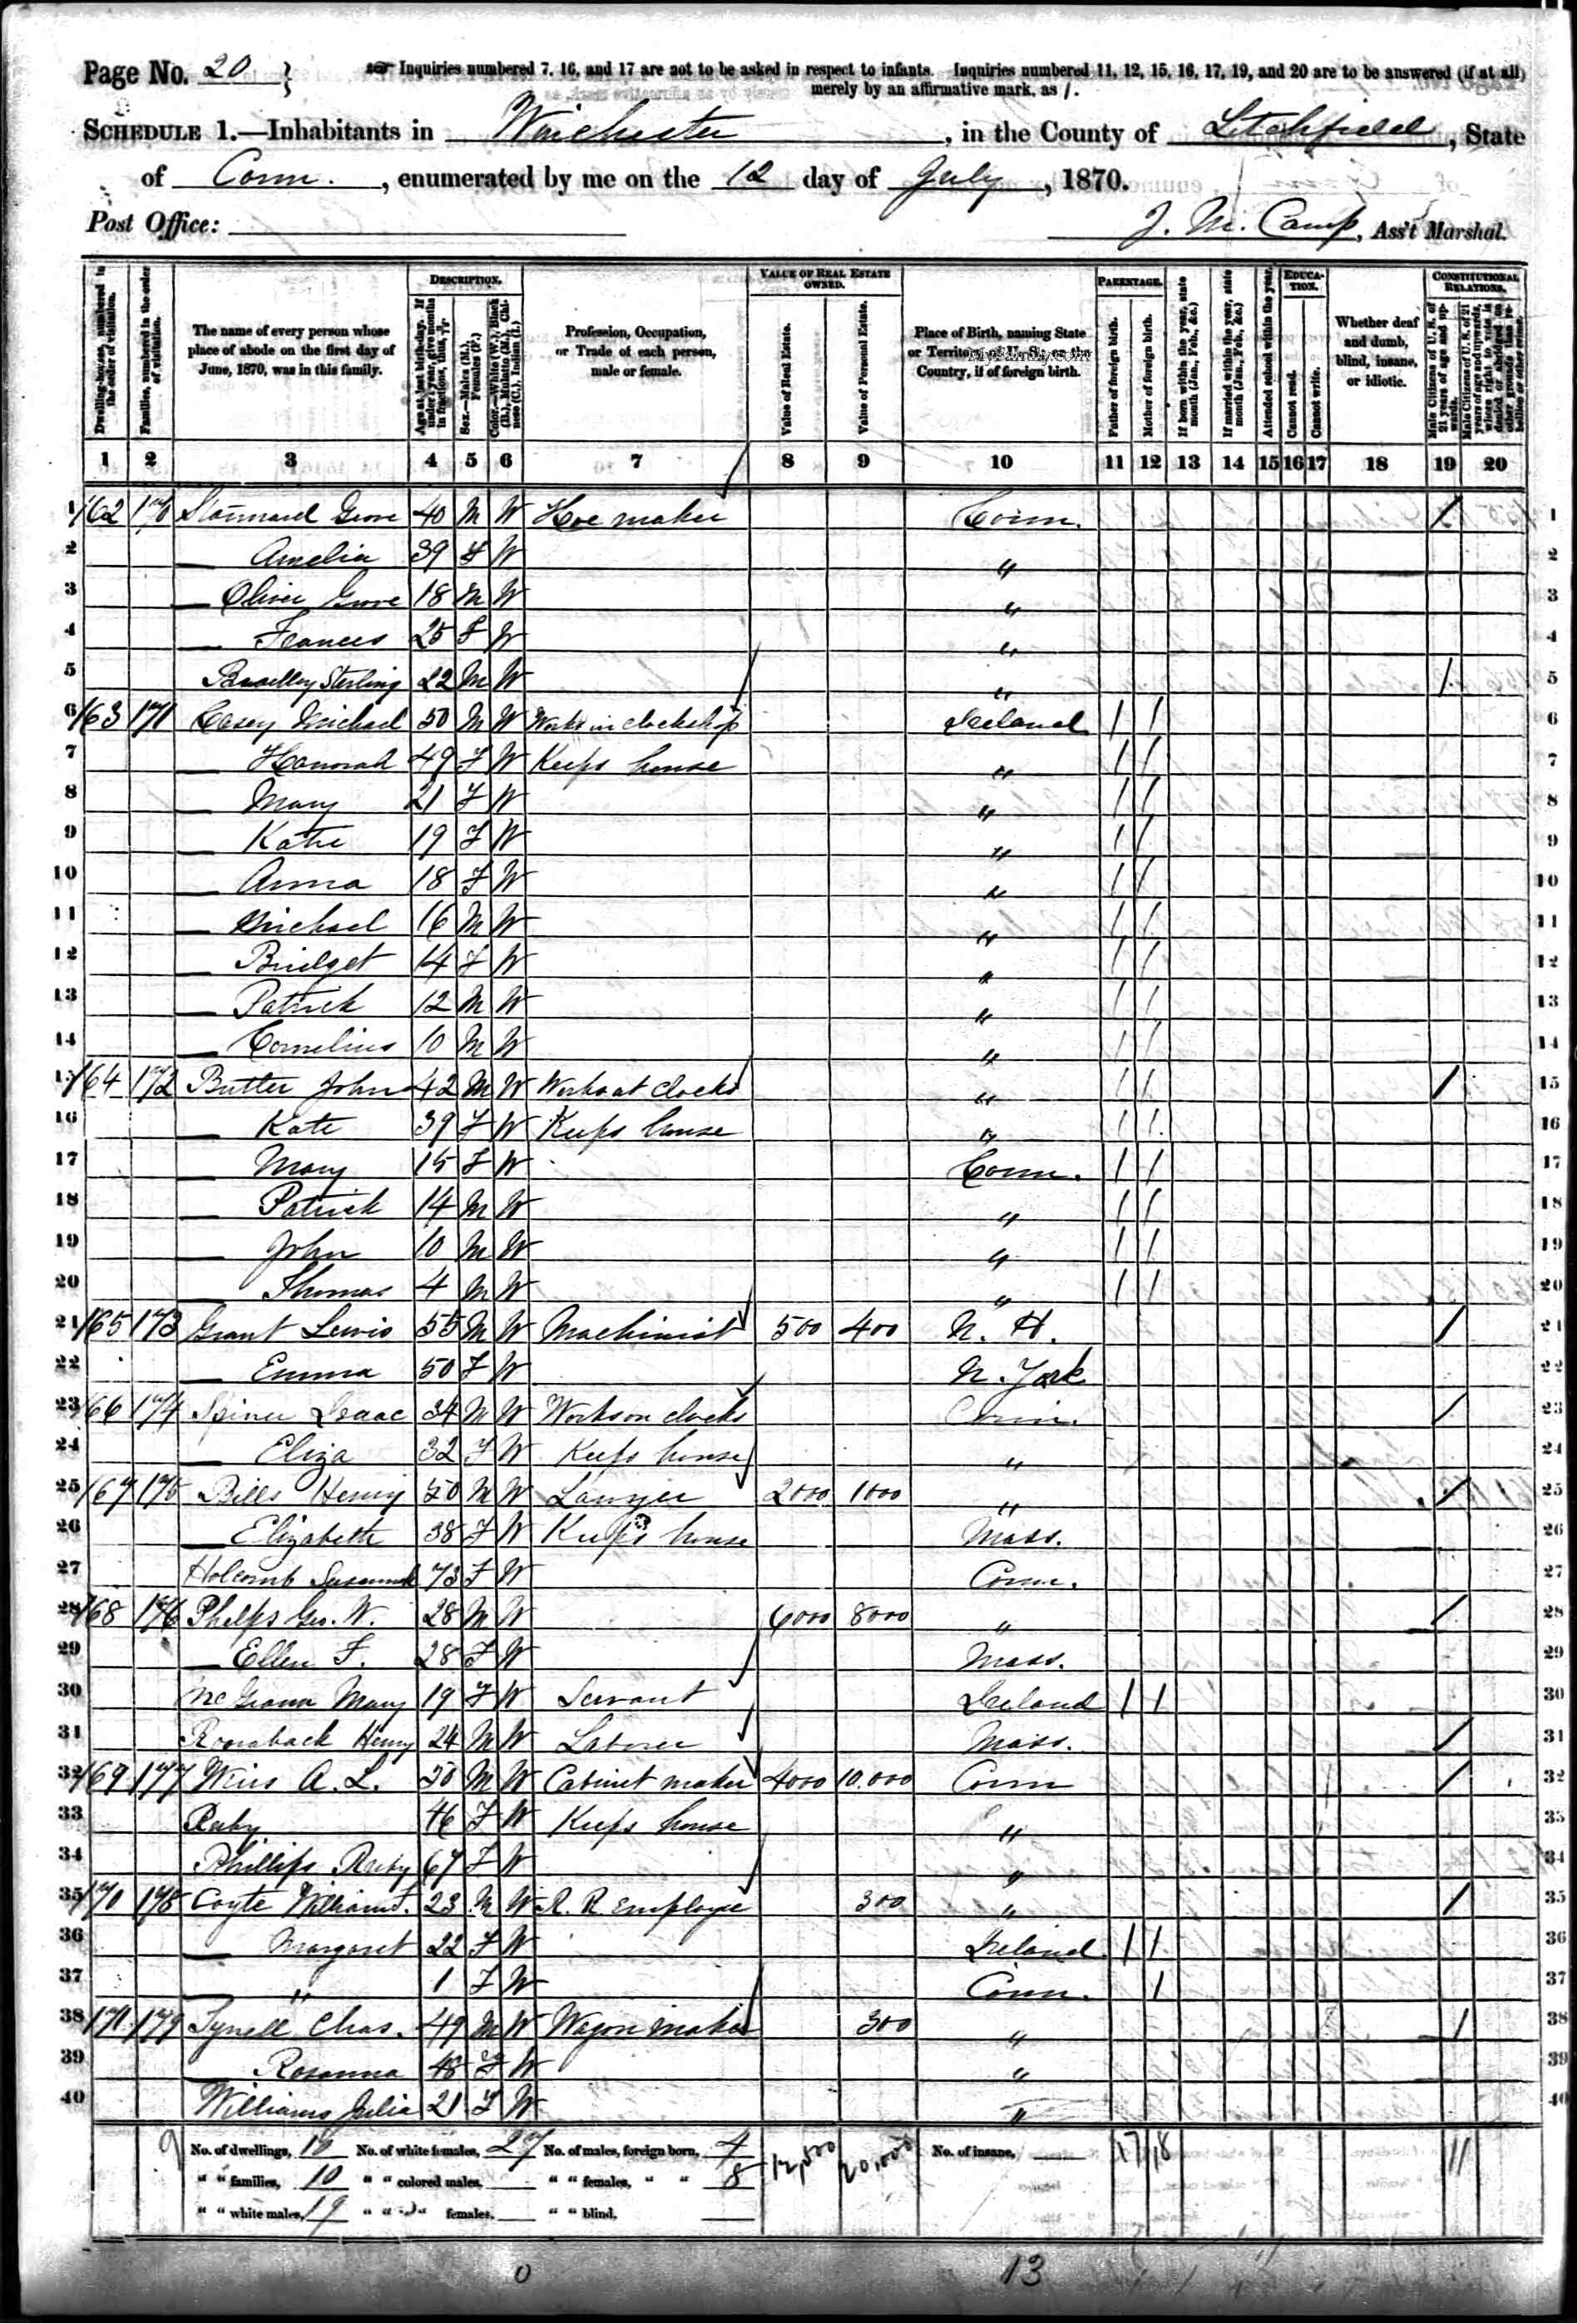 Page No. 20
Inquiries numbered 7, 16, and 17 are not to be asked in respect to infants. Inquiries numbered 11, 12, 15, 16, 17, 19, and 20 are to be answered (if at all)
merely by an affirmative mark, as /.
SCHEDULE 1.—Inhabitants in Winchester, in the County of Litchfield, State
of Conn., enumerated by me on the 12 day of July, 1870.
Post Office:
J. M. Camp, Ass't Marshal.
DESCRIPTION. VALUE OF REAL ESTATE OWNED. PARENTAGE. EDUCATION. CONSTITUTIONAL RELATIONS.
Dwelling-houses, numbered in the order of visitation.
Families, numbered in the order of visitation.
The name of every person whose place of abode on the first day of June, 1870, was in this family.
Age at last birth-day. If under 1 year, give months in fractions, thus,
Sex.—Males (M.), Females (F.)
Color.—White (W.), Black (B.), Mulatto (M.), Chinese (C.), Indian (I.)
Profession, Occupation, or Trade of each person, male or female.
Value of Real Estate.
Value of Personal Estate.
Place of Birth, naming State or Territory of U. S.; or the Country, if of foreign birth.
Father of foreign birth.
Mother of foreign birth.
If born within the year, state month (Jan., Feb., &c.)
If married within the year, state month (Jan., Feb., &c.)
Attended school within the year.
Cannot read.
Cannot write.
Whether deaf and dumb, blind, insane, or idiotic.
Male Citizens of U. S. of 21 years of age and upwards.
Male Citizens of U. S. of 21 years of age and upwards, whose right to vote is denied or abridged on other grounds than rebellion or other crime.
1 2 3 4 5 6 7 8 9 10 11 12 13 14 15 16 17 18 19 20
1 162 170 Stannard 40 M W Hoe maker Conn. / 1
2 — Amelia 39 F W " 2
3 — Oliver 18 M W " 3
4 — Frances 25 F W " 4
5 Sterling 22 M W " / 5
6 163 171 Casey Michael 50 M W Works in clock shop Ireland / / 6
7 — Hannah 49 F W Keeps house " / / 7
8 — Mary 21 F W " / / 8
9 — Katie 19 F W " / / 9
10 — Anna 18 F W " / / 10
11 — Michael 16 M W " / / 11
12 — Bridget 14 F W " / / 12
13 — Patrick 12 M W " / / 13
14 — Cornelius 10 M W " / / 14
15 164 172 Butler John 42 M W Works at clocks " / / / 15
16 — Kate 39 F W Keeps house " / / 16
17 — Mary 15 F W Conn. / / 17
18 — Patrick 14 M W " / / 18
19 — John 10 M W " / / 19
20 — Thomas 4 M W " / / 20
21 165 173 Grant Lewis 55 M W Machinist 500 400 N. H. / 21
22 — Emma 50 F W N. York 22
23 166 174 Isaac 34 M W Works on clocks Conn. / 23
24 — Eliza 32 F W Keeps house " 24
25 167 175 Bills Henry 50 M W Lawyer 2000 1000 " / 25
26 — Elizabeth 38 F W Keeps house Mass. 26
27 Holcomb 73 F W Conn. 27
28 168 176 Phelps Geo. W. 28 M W 6000 8000 " / 28
29 — Ellen F. 28 F W Mass. 29
30 Mary 19 F W Servant Ireland / / 30
31 Henry 24 M W Laborer Mass. / 31
32 169 177 A. L. 50 M W Cabinet maker 4000 10.000 Conn / 32
33 Ruby 46 F W Keeps house " 33
34 Phillips Ruby 67 F W " 34
35 170 178 Coyte William 23 M W R. R Employee 300 " / 35
36 — Margaret 22 F W Ireland / / 36
37 — " 1 F W Conn. / 37
38 171. 179 Tyrell Chas. 49 M W Wagon maker 300 " / 38
39 — Rosanna 48 F W " 39
40 Williams Julia 21 F W " 40
9 No. of dwellings, 10 No. of white females, 27 No. of males, foreign born, 4 12,500 20,000 No. of insane, 17 18 11
" " families, 10 " " colored males, " " females, " " 8
" " white males, 19 " " " females, " " blind,
0 13